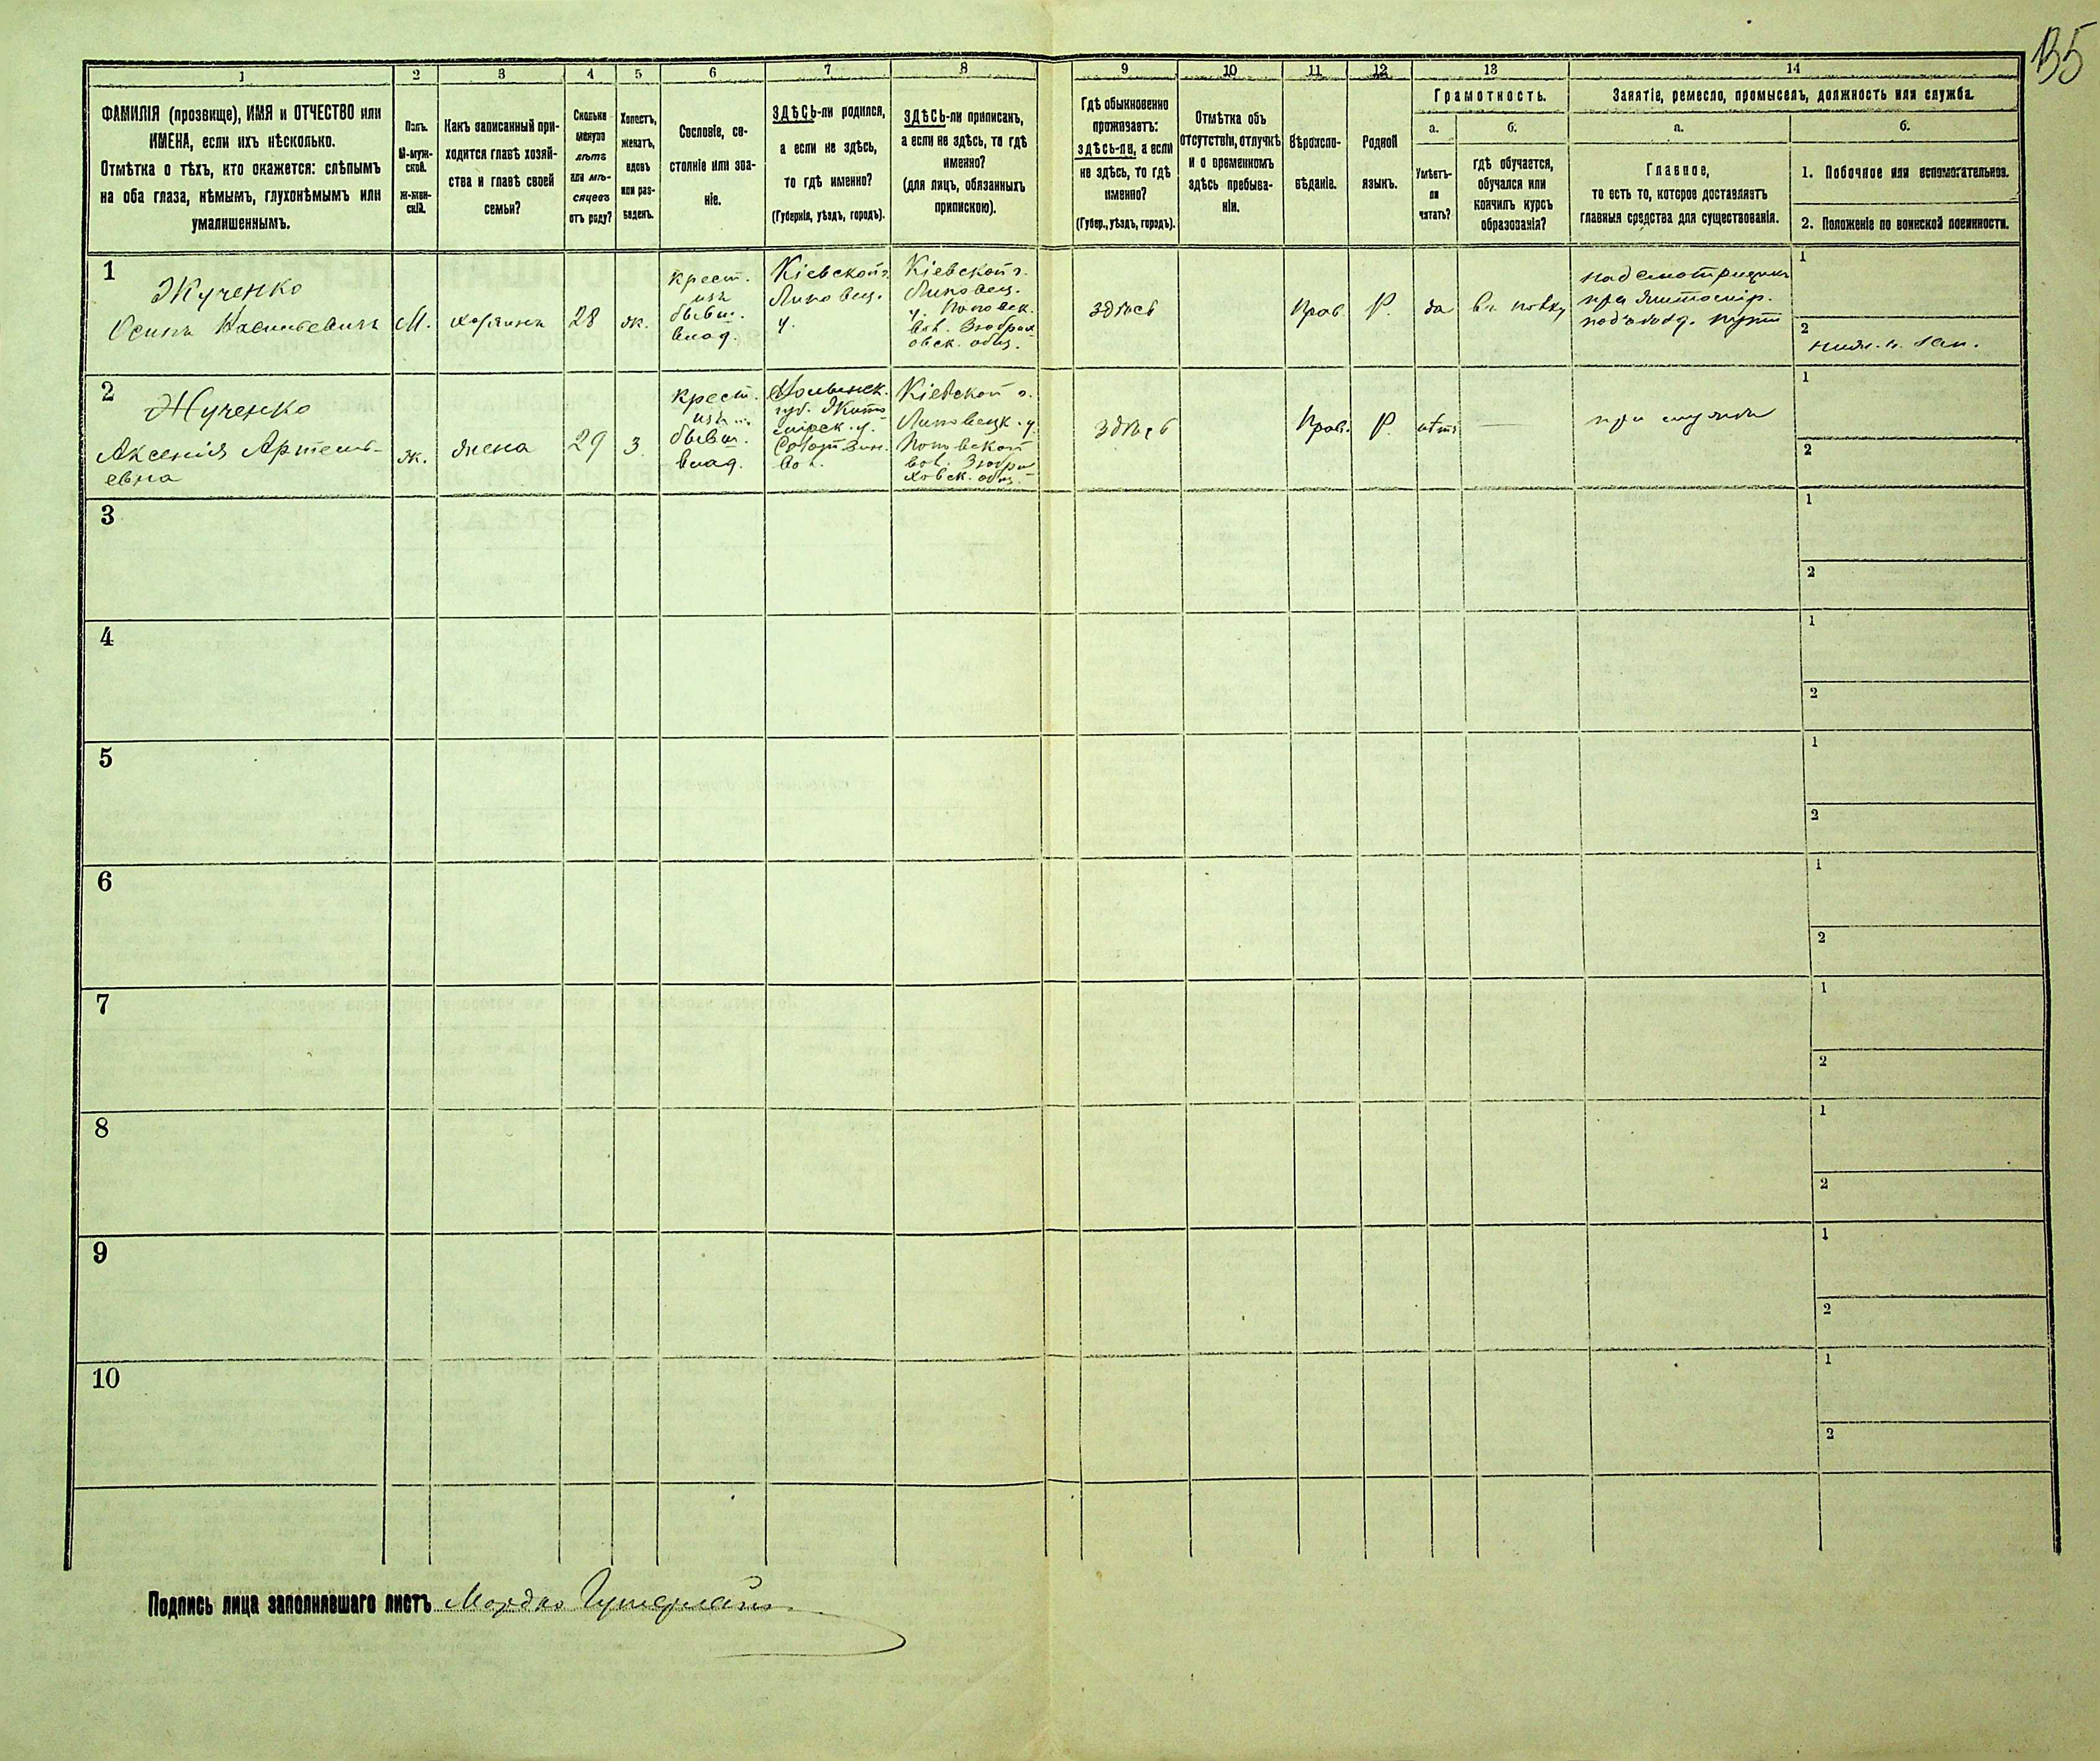 135
1
2
3
4
5
6
7
8
9
10
11
12
13
14
ФАМИЛІЯ (прозвище), ИМЯ и ОТЧЕСТВО или
ИМЕНА, если ихъ нѣсколько.
Отмѣтка о тѣхъ, кто окажется: слѣпымъ
на оба глаза, нѣмымъ, глухонѣмымъ или
умалишеннымъ.
Полъ.
М-муж-
ской.
Ж-жен-
скій.
Какъ записанный при-
ходится главѣ хозяй-
ства и главѣ своей
семьи?
Сколько
минуло
лѣтъ
или мѣ-
сяцевъ
отъ роду?
Холостъ,
женатъ,
вдовъ
или раз-
веденъ.
Сословіе, со-
стояніе или зва-
ніе.
ЗДѢСЬ-ли родился,
а если не здѣсь,
то гдѣ именно?
(Губернія, уѣздъ, городъ).
ЗДѢСЬ-ли приписанъ,
а если не здѣсь, то гдѣ
именно?
(для лицъ, обязанныхъ
припискою).
Гдѣ обыкновенно
проживаетъ:
здѣсь-ли, а если
не здѣсь, то гдѣ
именно?
(Губер., уѣздъ, городъ).
Отмѣтка объ
отсутствіи, отлучкѣ
и о временномъ
здѣсь пребыва-
ніи.
Вѣроиспо-
вѣданіе.
Родной
языкъ.
Грамотность.
а.
Умѣетъ-
ли
читать?
б.
гдѣ обучается,
обучался или
кончилъ курсъ
образованія?
Занятіе, ремесло, промыселъ, должность или служба.
а.
Главное,
то есть то, которое доставляетъ
главныя средства для существованія.
б.
1. Побочное или вспомогательное.
2. Положеніе по воинской повинности.
1
Жученко
Осипъ
М.
хозяинъ
28
ж.
крест.
изъ
бывш.
влад.
Кіевской г.
Липовец.
у.
Кіевской г.
Липовец.
у.
вол.
общ.
здѣсь
Прав.
Р.
да
въ полку
надсмотрщикъ
при Житомір.
1
2
2
Жученко
Аксенія Артемь-
евна
ж.
жена
29
з.
крест.
изъ
бывш.
влад.
Волынск.
губ. Жито
мірск. у.
вол.
Кіевской г.
Липовецк. у.
Поповской
вол.
общ.
здѣсь
Прав.
Р.
нѣтъ
—
при мужѣ
1
2
3
1
2
4
1
2
5
1
2
6
1
2
7
1
2
8
1
2
9
1
2
10
1
2
Подпись лица заполнявшаго листъ Мордко